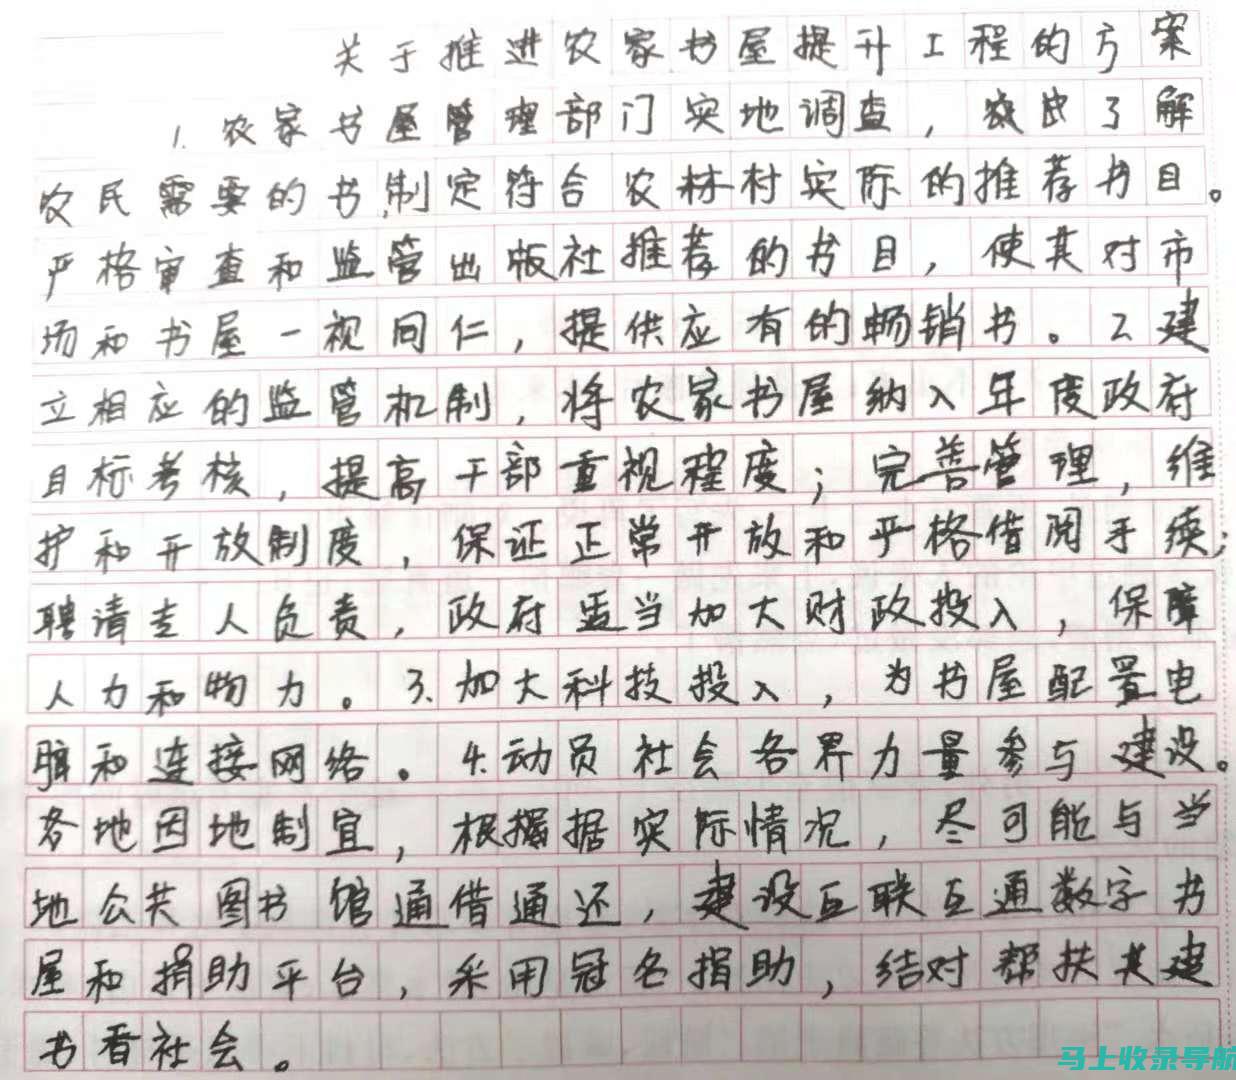 关于推进农家书屋提升工程的方案
1. 农家书屋管理部门实地调查，了解
农民需要的书,制定符合农林村实际的推荐书目。
严格审查和监管出版社推荐的书目，使其对市
场和书屋一视同仁，提供应有的畅销书。2建
立相应的监管机制，将农家书屋纳入年度政府
目标考核，提高干部重视程度；完善管理，维
护和开放制度，保证正常开放和严格借阅手续；
聘请专人负责，政府适当加大财政投入，保障
人力和物力。3.加大科技投入，为书屋配置电
脑和连接网络。4.动员社会各界力量参与建设。
各地因地制宜，根据实际情况，尽可能与当
地公共图书馆通借通还，建设互联互通数字书
屋和捐助平台，采用冠名捐助，结对帮扶共建
书香社会。
马上收录导航